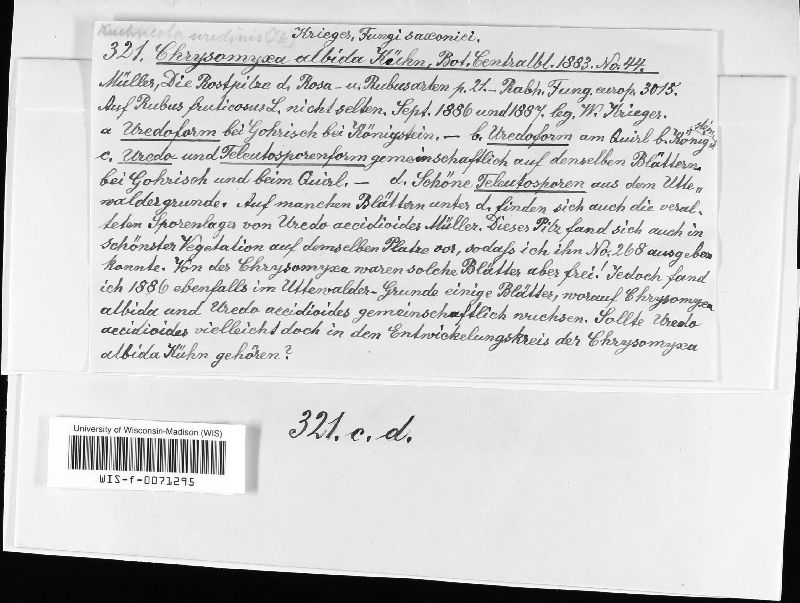 Kuehneola uredinis (Lk)
Krieger, Fungi saxonici.
321. Chrysomyxa albida Kühn, Bot. Centralbl. 1883. No. 44.
Müller, Die Rostpilze d. Rosa- u. Rubusarten p. 21. – Rabh. Fung. europ. 3015.
Auf Rubus fruticosus L. nicht selten. Sept. 1886 und 1887. leg. W. Krieger.
a Uredoform bei Gohrisch bei Königstein. – b. Uredoform am Quirl b. König-
stein
c. Uredo- und Teleutosporenform gemeinschaftlich auf denselben Blättern
bei Gohrisch und beim Quirl. – d. Schöne Teleutosporen aus dem Utte-
waldergrunde. Auf manchen Blättern unter d. finden sich auch die veral-
teten Sporenlager von Uredo aecidioides Müller. Dieser Pilz fand sich auch in
schönster Vegetation auf demselben Platze vor, sodass ich ihn No. 268 ausgeben
konnte. Von der Chrysomyxa waren solche Blätter aber frei. Jedoch fand
ich 1886 ebenfalls im Uttewalder-Grunde einige Blätter, worauf Chrysomyxa
albida und Uredo aecidioides gemeinschaftlich wuchsen. Sollte Uredo
aecidioides vielleicht doch in den Entwickelungskreis der Chrysomyxa
albida Kühn gehören?
321. c. d.
University of Wisconsin-Madison (WIS)
WIS-f-0071295